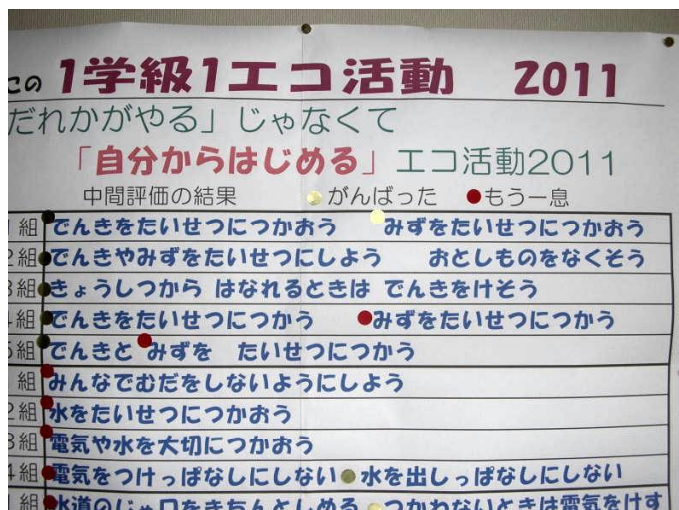 この 1学級1エコ活動 2011
だれかがやる」じゃなくて
「自分からはじめる」エコ活動2011
中間評価の結果 がんばった もう一息
1組 でんきをたいせつにつかおう みずをたいせつにつかおう
2組 でんきやみずをたいせつにしよう おとしものをなくそう
3組 きょうしつから はなれるときは でんきをけそう
4組 でんきをたいせつにつかう みずをたいせつにつかう
5組 でんきと みずを たいせつにつかう
組 みんなでむだをしないようにしよう
2組 水をたいせつにつかおう
3組 電気や水を大切につかおう
4組 電気をつけっぱなしにしない 水を出しっぱなしにしない
1組 水道のじゃ口をきちんとしめる つかわないときは電気をけす